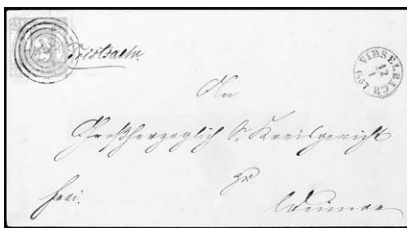 VIESELBACH
12
1
An
Großherzoglich S. Kreisgericht
zu
frei. Weimar